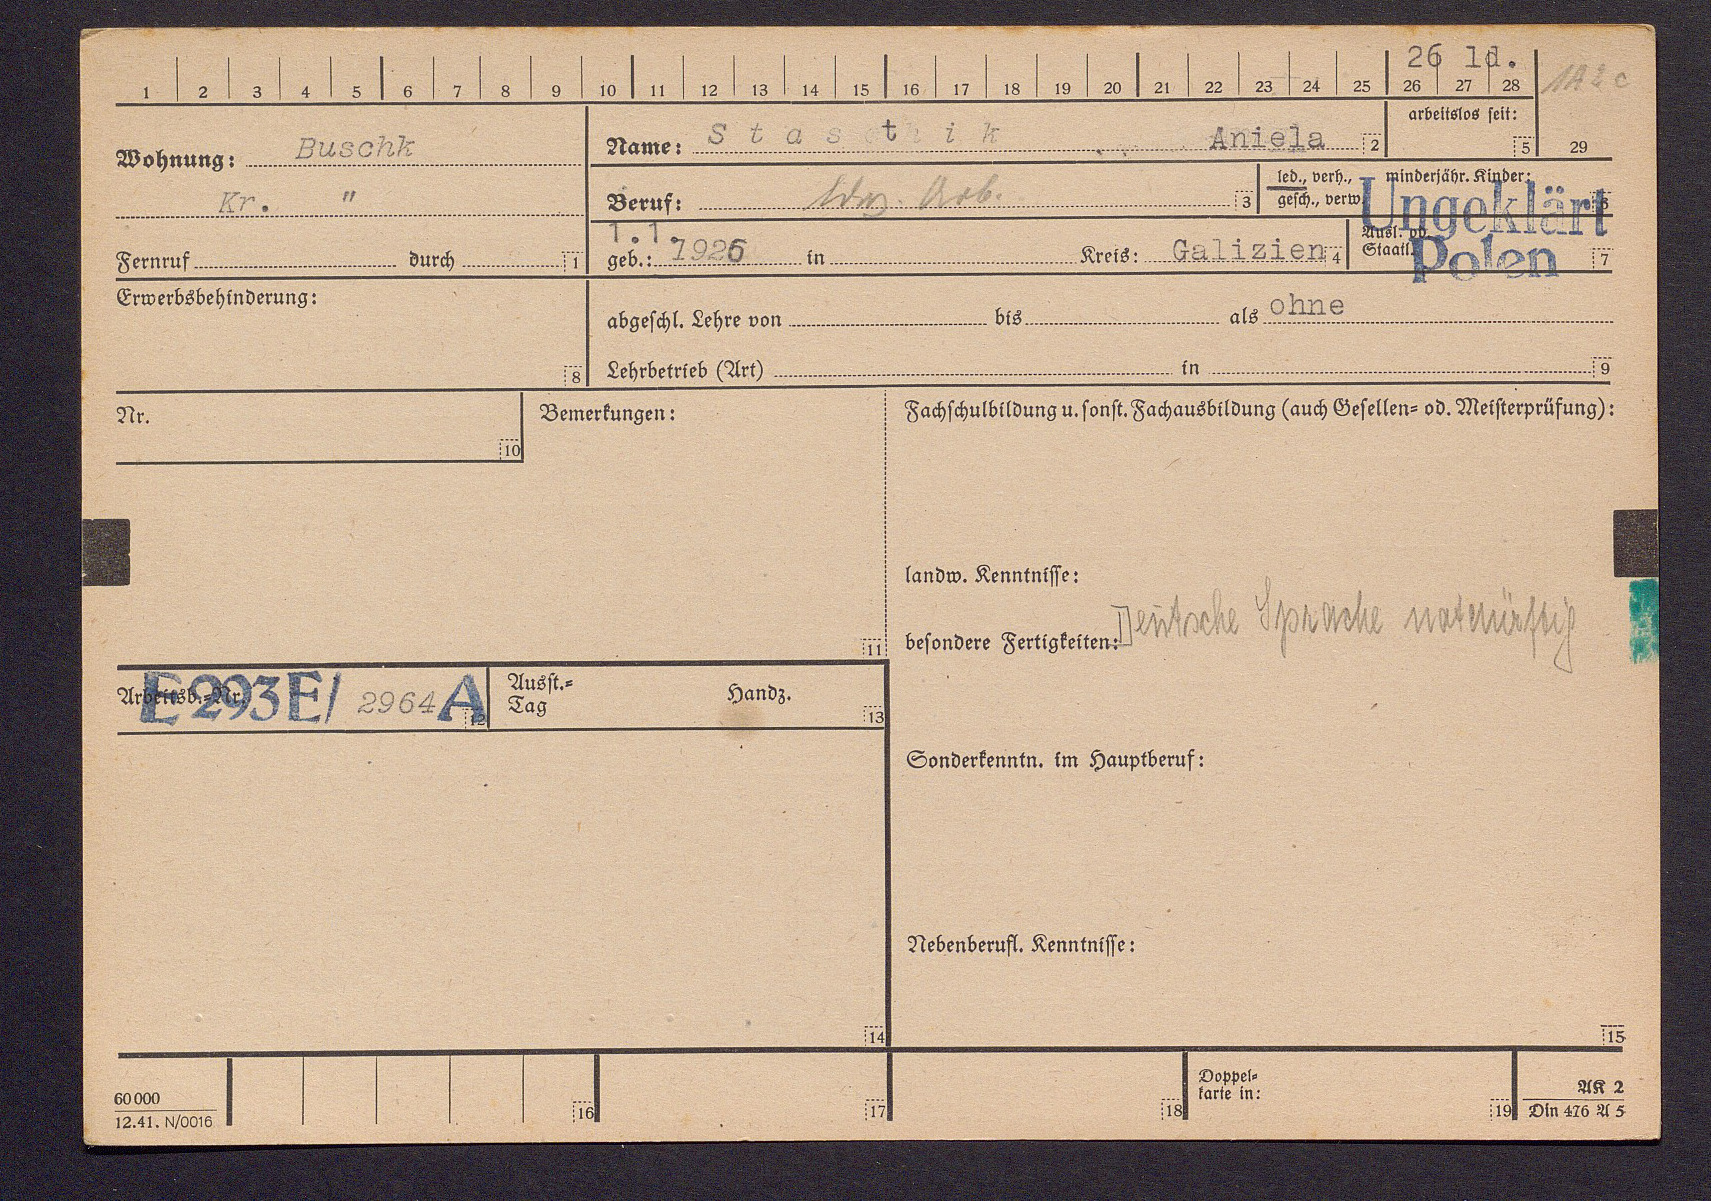 26 ld.
1 2 3 4 5 6 7 8 9 10 11 12 13 14 15 16 17 18 19 20 21 22 23 24 25 26 27 28
1A2c
29
Wohnung: Buschk
Kr. "
Fernruf durch 1
Name: Aniela 2
arbeitslos seit: 5
Beruf: ldw. Arb. 3
led., verh., gesch., verw.
minderjähr. Kinder: 6
1.1.
geb.: 1926 in Kreis: Galizien 4
Ausl. od. Staatl. 7
Ungeklärt
Polen
Erwerbsbehinderung: 8
abgeschl. Lehre von bis als ohne
Lehrbetrieb (Art) in 9
Nr. 10
Bemerkungen: 11
Fachschulbildung u. sonst. Fachausbildung (auch Gesellen= od. Meisterprüfung):
landw. Kenntnisse:
besondere Fertigkeiten: Deutsche Sprache notdürftig
Arbeitsb.=Nr. E 293 E/ 2964 A 12
Ausst.=
Tag
Handz. 13
Sonderkenntn. im Hauptberuf:
Nebenberufl. Kenntnisse:
14
15
60 000
12.41. N/0016
16
17
18
Doppel=
karte in: 19
AK 2
Din 476 A 5